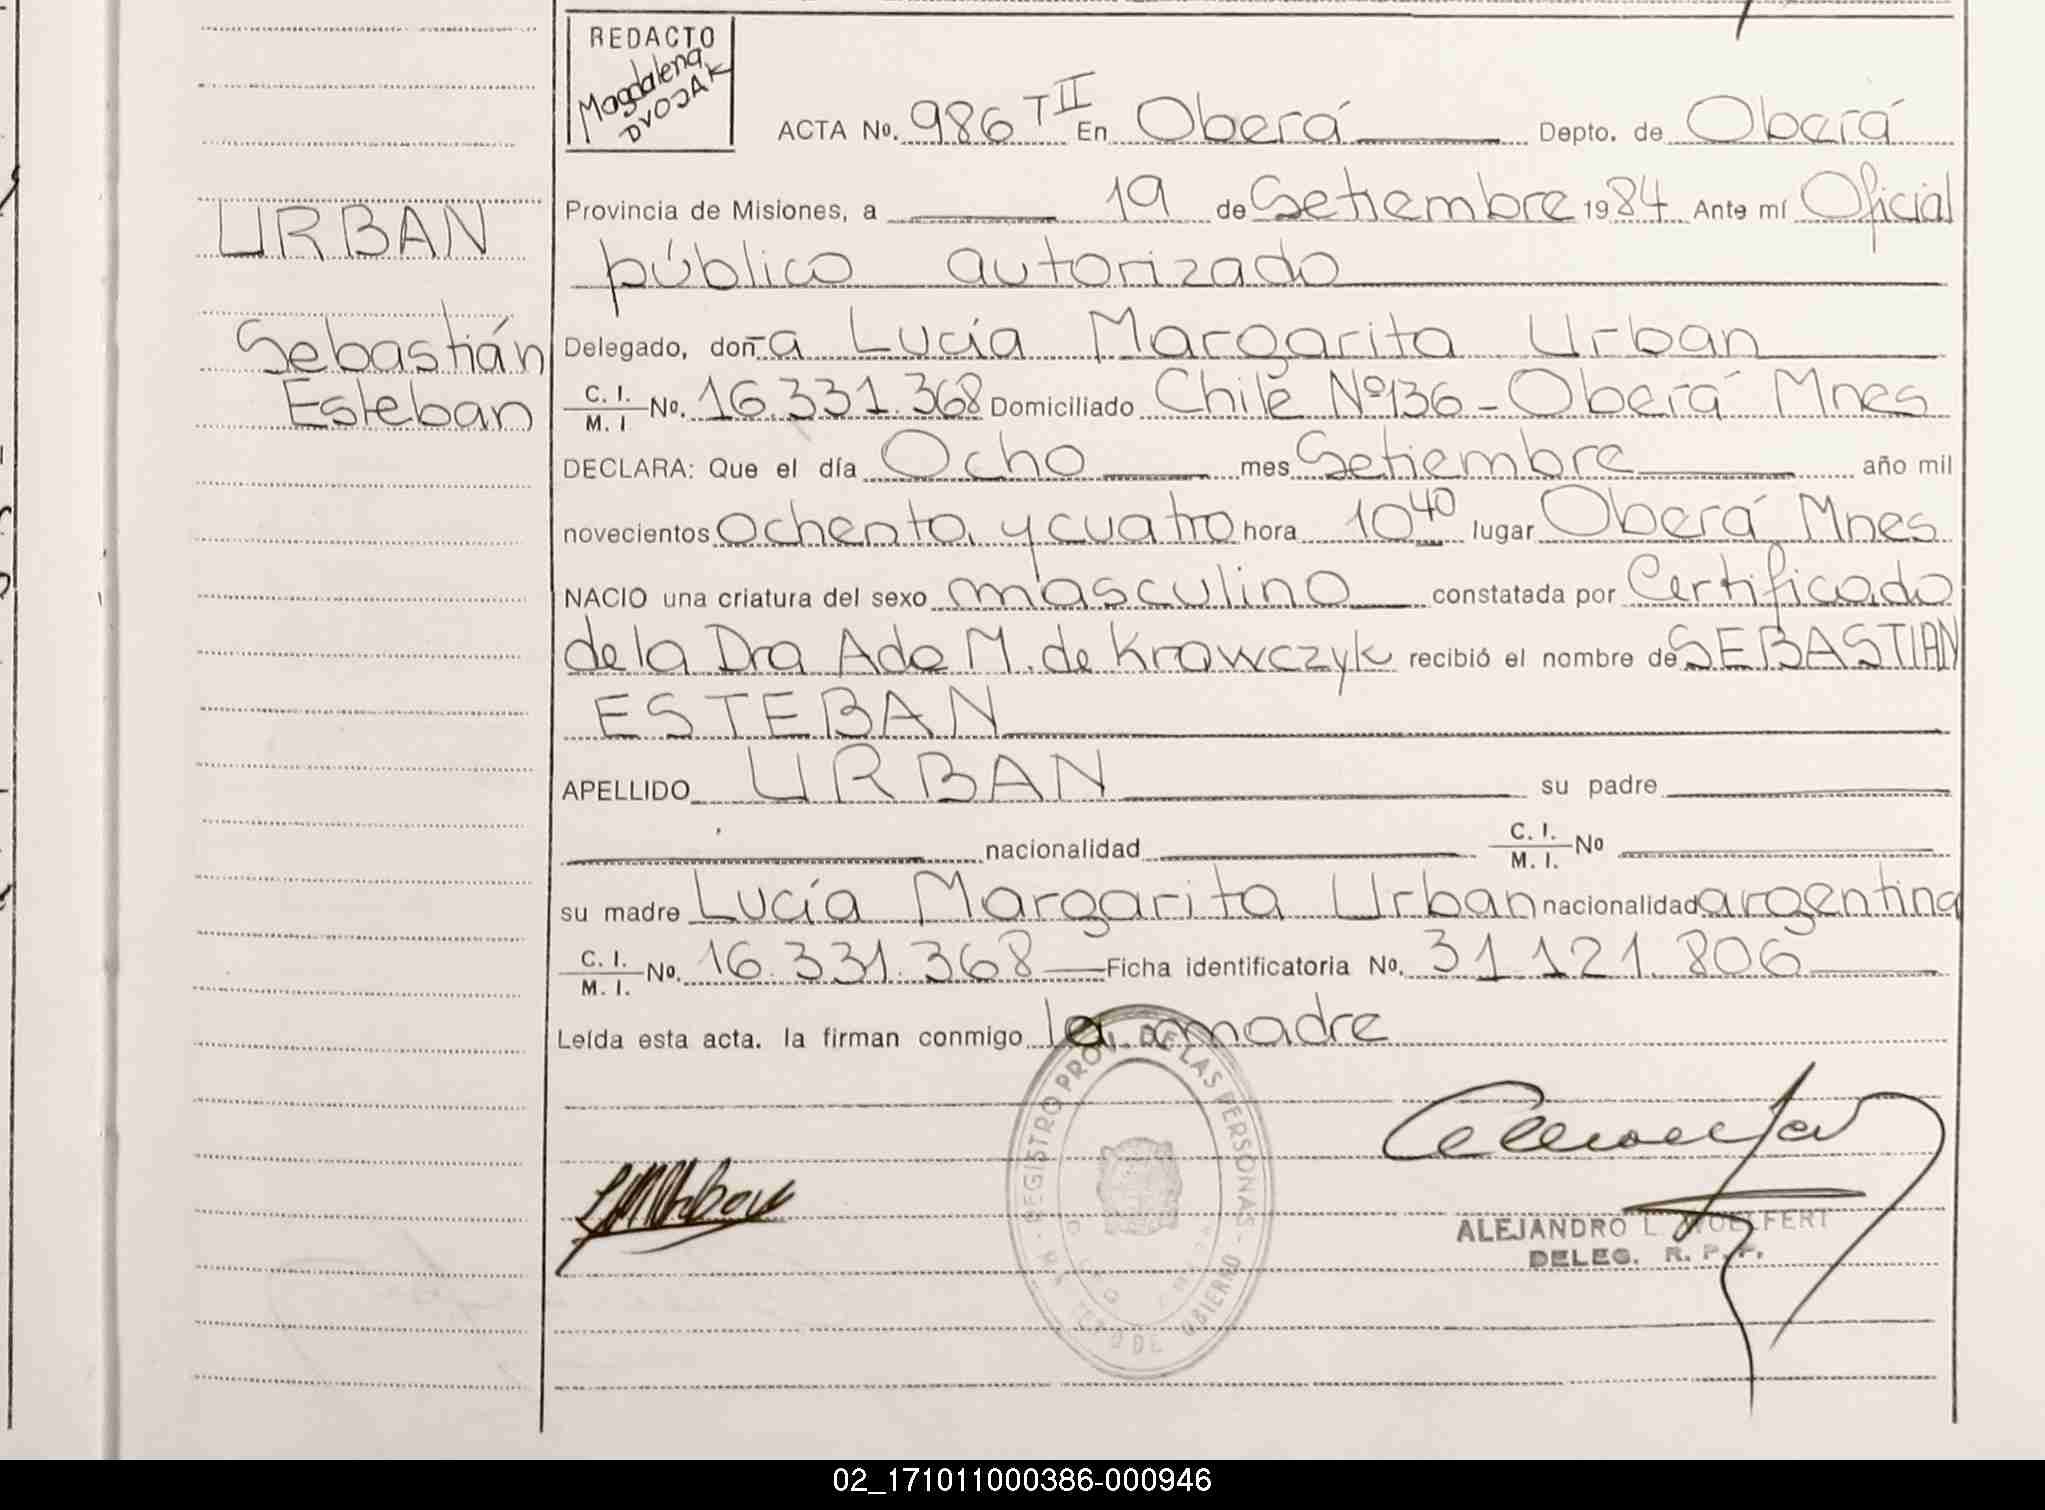 REDACTO
Magdalena
DVOJAK
ACTA No. 986 T II En Oberá Depto. de Oberá
Provincia de Misiones, a 19 de Setiembre 1984 Ante mí Oficial
público autorizado
Delegado, doña Lucía Margarita Urban
C. I. / M. I No. 16.331.368 Domiciliado Chile Nº136-Oberá Mnes
DECLARA: Que el día Ocho mes Setiembre año mil
novecientos ochenta y cuatro hora 10 40 lugar Oberá Mnes
NACIO una criatura del sexo masculino constatada por Certificado
de la Dra Ada M. de Krawczyk recibió el nombre de SEBASTIAN
ESTEBAN
APELLIDO URBAN su padre
nacionalidad C. I. / M. I. No
su madre Lucía Margarita Urban nacionalidad argentina
C. I. / M. I. No. 16.331.368 Ficha identificatoria No. 31 121 806
Leída esta acta. la firman conmigo la madre
URBAN
Sebastián
Esteban
REGISTRO PROV. DE LAS PERSONAS
ALEJANDRO L. WOELFERT
DELEG. R. P. P.
02_171011000386-000946